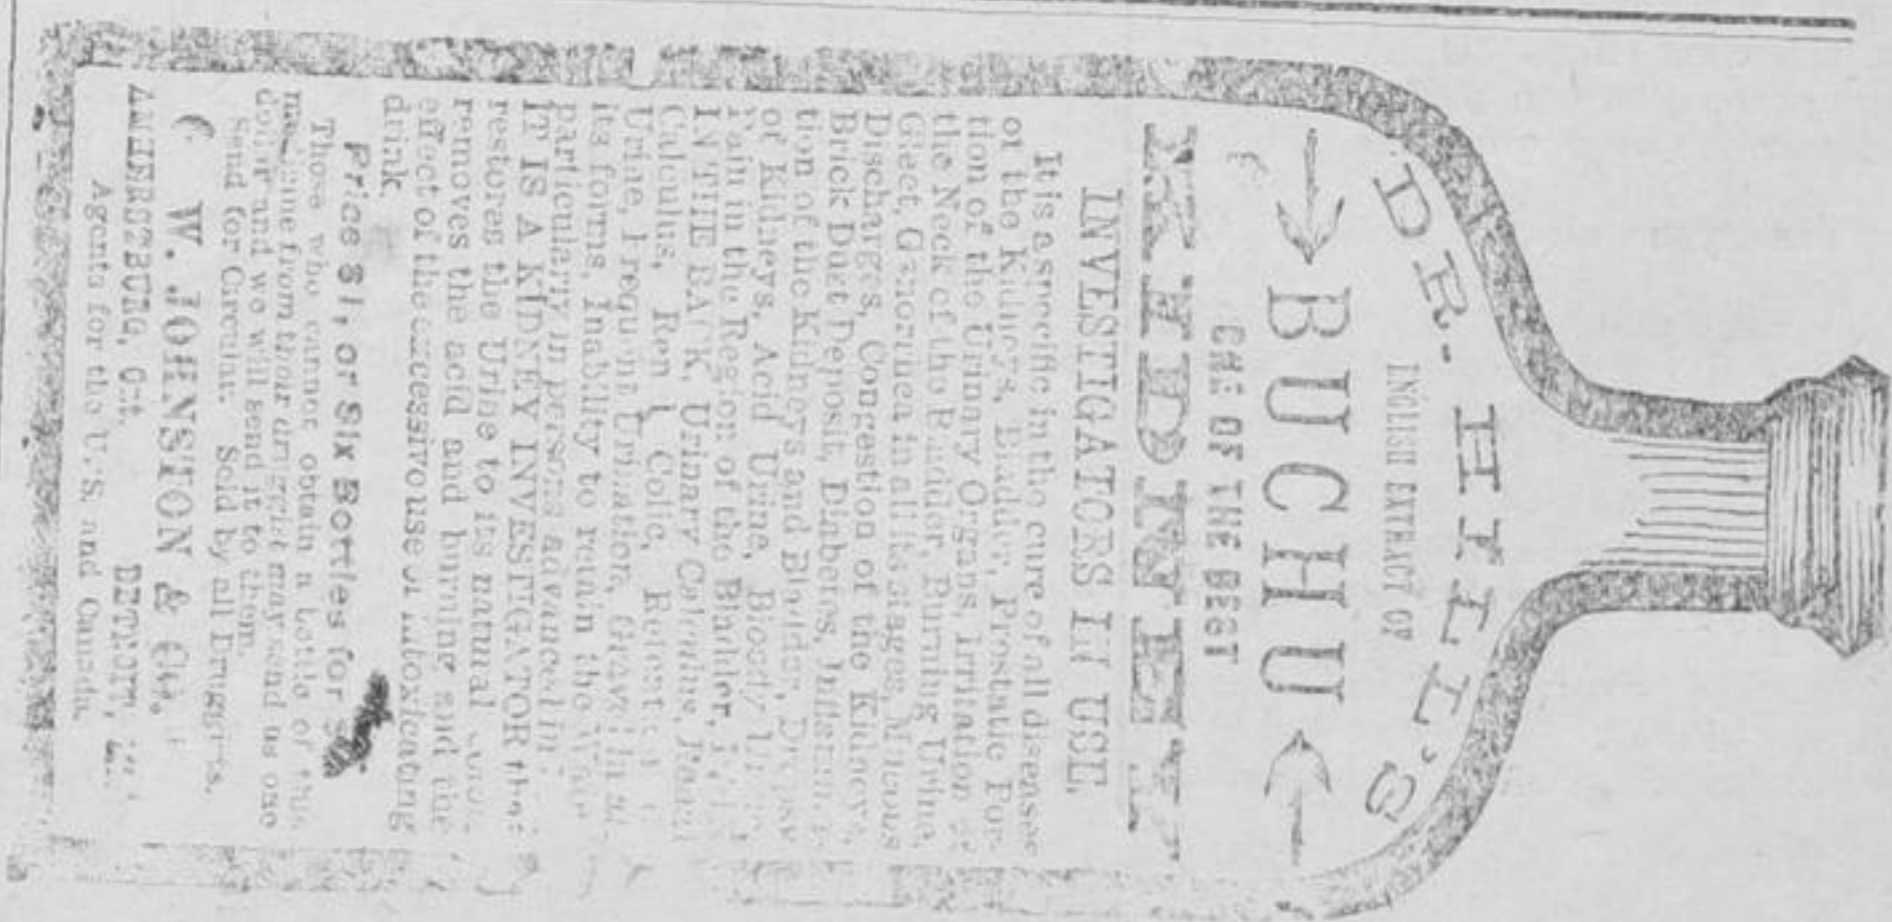 DR. HELL'S
ENGLISH EXTRACT OF
BUCHU
ONE OF THE BEST
KIDNEY
INVESTIGATORS IN USE.
It is a specific in the cure of all diseases
of the Kidneys, Bladder, Prostatic Por-
tion of the Urinary Organs, Irritation of
the Neck of the Bladder, Burning Urine,
Gleet, Gonorrhœa in all its stages, Mucous
Discharges, Congestion of the Kidneys,
Brick Dust Deposit, Diabetes, Inflamma-
tion of the Kidneys and Bladder, Dropsy
of Kidneys, Acid Urine, Bloody Urine,
Pain in the Region of the Bladder,
IN THE BACK, Urinary Calculus, Renal
Calculus, Renal Colic, Retention
Urine, Frequent Urination, Gravel in all
its forms, Inability to retain the Water,
particularly in persons advanced in
IT IS A KIDNEY INVESTIGATOR that
restores the Urine to its natural
removes the acid and burning and the
effect of the excessive use of intoxicating
drink.
Price $1, or Six Bottles for
Those who cannot obtain a bottle of this
medicine from their druggist may send us one
dollar and we will send it to them.
Send for Circular. Sold by all Druggists.
W. JOHNSTON & Co.
AMHERSTBURG, Ont. DETROIT,
Agents for the U.S. and Canada.